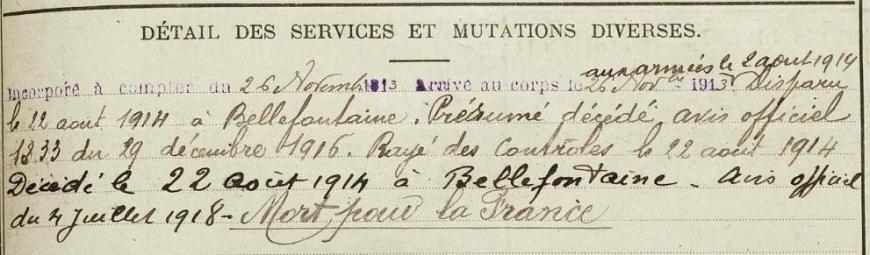 DÉTAIL DES SERVICES ET MUTATIONS DIVERSES.
aux armées le 2 août 1914
Incorporé à compter du 26 Novembre 1913 Arrivé au corps le 26 Nov. 1913 Disparu
le 22 août 1914 à Bellefontaine. Présumé décédé avis officiel
1333 du 29 décembre 1916. Rayé des Contrôles le 22 août 1914
Décédé le 22 août 1914 à Bellefontaine - Avis officiel
du 4 Juillet 1918 - Mort pour la France